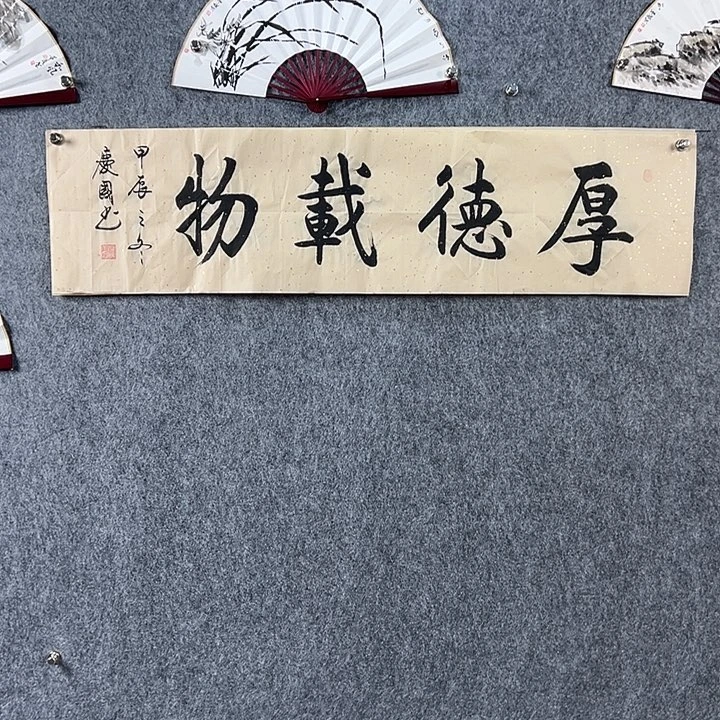 厚德載物
甲辰之冬
慶國书